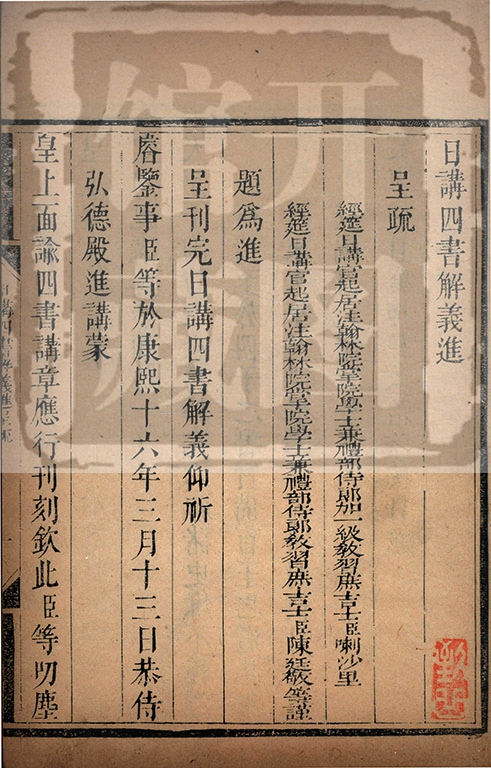 日講四書解義進
呈疏
經筵日講官起居注翰林院掌院學士兼禮部侍郎加一級教習庶吉士臣喇沙里
經筵日講官起居注翰林院掌院學士兼禮部侍郎教習庶吉士臣陳廷敬等謹
題爲進
呈刊完日講四書解義仰祈
睿鑒事臣等於康熙十六年三月十三日恭侍
弘德殿進講蒙
皇上面諭四書講章應行刊刻欽此臣等叨塵